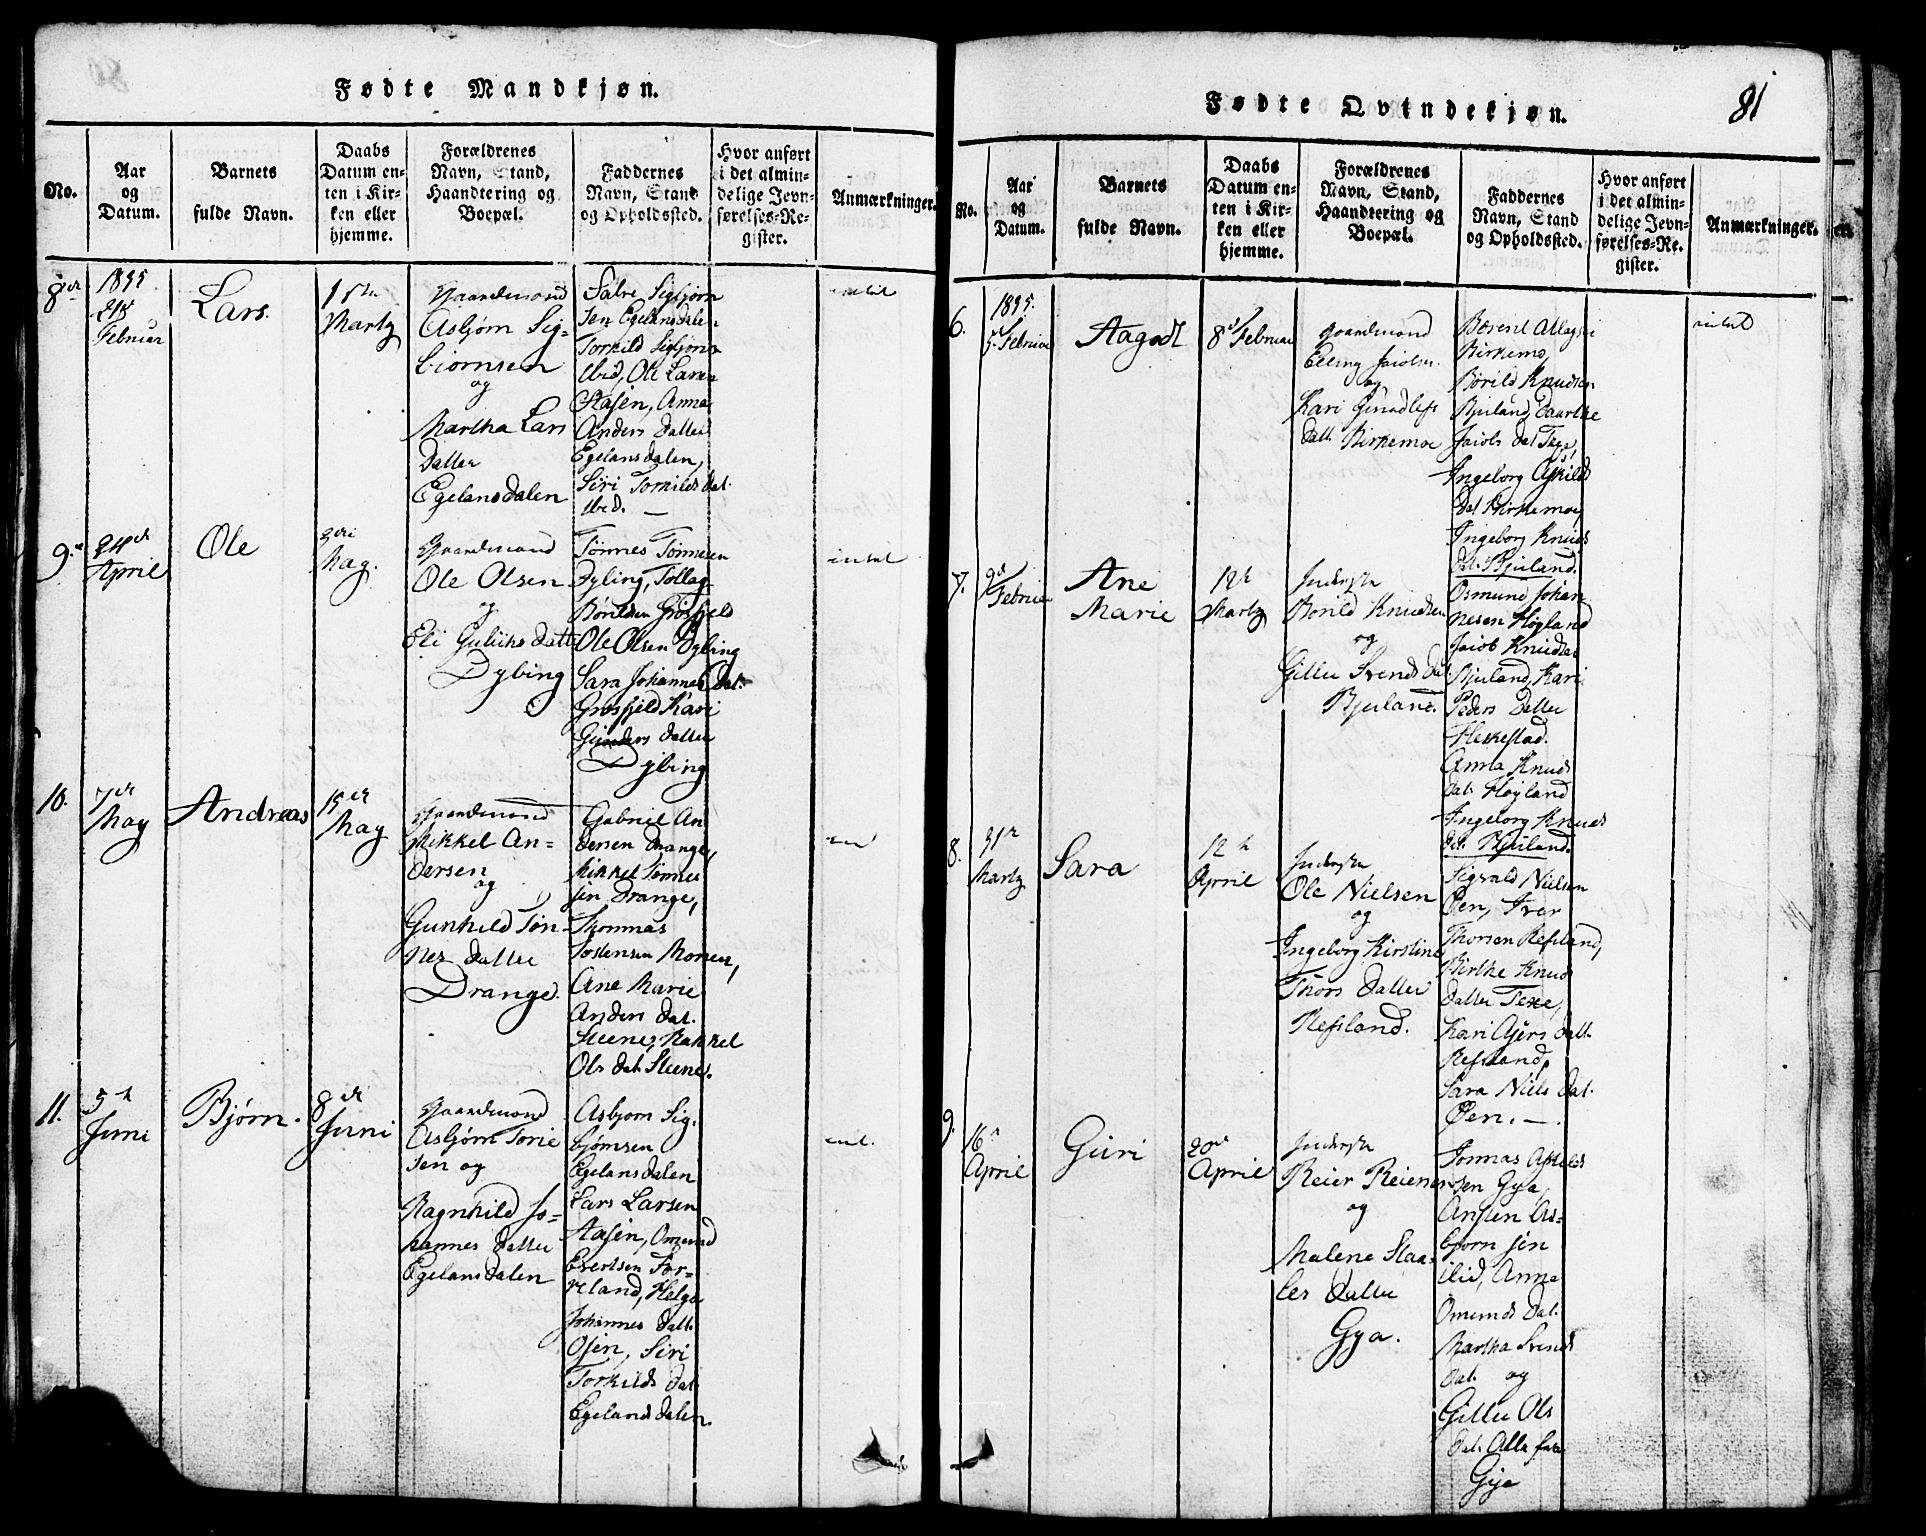 Fødte Mandkjøn.
No.
Aar
og
Datum.
Barnets
fulde Navn.
Daabs
Datum en-
ten i Kir-
ken eller
hjemme.
Forældrenes
Navn, Stand,
Haandtering og
Boepæl.
Faddernes
Navn, Stand
og Opholdssted.
Hvor anført
i det almin-
delige Jevn-
førelses-Re-
gister.
Anmærkninger.
8de
Februar
Lars.
Martz
Gaardmand
Asbjørn Sig-
biørnsen
og
Martha Lars
Datter
Egelandsdalen
Salve Sigbjørn
sen Egelansdalen
Torkild Sigbjørns
ibid, Ole Larsen
Aasen, Anne
Anders Datter
Egelansdalen,
Siri Torkilds dat.
ibid. —
9.
24de
April
Ole
May.
Gaardmand
Ole Olsen
og
Eli Guliks datt
Dybing
Tønnes Tønnesen
Dybing, Tollag
Børildsen Grosfjeld
Ole Olsen Dybing
Sara Johannes Dat.
Grosfjeld Kari
Gunders Datter
Dybing
10.
7de
May
Andreas
15de
May
Gaardmand
Mikkel An-
dersen
og
Gunhild Tøn-
nes Datter
Drange.
Gabriel An
dersen Drange,
Mikkel Tønnes
sen Drange,
Thommas
Tostensen Moneu,
Ane Marie
Anders dat.
Steene, Rakkel
Ols dat. Steene.
11.
5te
Juni
Bjørn.
8de
Juni
Gaardmand
Asbjørn Torie
sen og
Ragnhild Jo-
hannes Datter
Egelansdalen
Asbjorn Sig-
bjørnsen
Egelansdalen
Lars Larsen
Aasen, Omund
Evertsen For-
reland, Helga
Johannes datt.
Osen, Siri
Torkilds dat
Egelandsdalen.
Fødte Qvindekjøn.
81
No.
Aar
og
Datum.
Barnets
fulde Navn.
Daabs
Datum en-
ten i Kir-
ken eller
hjemme.
Forældrenes
Navn, Stand,
Haandtering og
Boepæl.
Faddernes
Navn, Stand
og Opholdssted.
Hvor anført
i det almin-
delige Jevn-
førelses-Re-
gister.
Anmærkninger.
6.
5. Februar
Aagodt
8de Februar
Gaardmand
Elling Jacobs.
og
Kari Gundlefs
datt. Birkemoe
Birkemo,
Børild Knudsen
Bjuland,
Jacobs dat Texe,
Ingeborg Askilds
dat Birkemoe,
Ingeborg Knuds
dat. Bjuland.
7.
Februar
Ane
Marie
12te
Martz
Inderste
Børild Knudsen
og
Gitlu Svends dat.
Bjuland.
Osmund Johan-
nesen Høyland
Jacob Knudsen
Bjuland, Kari
Peders Datter
Heskestad.
Anna Knuds
dat. Høyland
Ingeborg Knuds
dat. Bjuland.
8.
Martz
Sara
12te
April
Inderste
Ole Nielsen
og
Ingeborg Kirstine
Thors Datter
Refsland.
Sigvald Nielsen
Øen, Iver
Thorsen Refsland,
Birthe Knuds
datter Texe,
Kari Asjers datt.
Refsland,
Sara Niels dat.
Øen. —.
9.
16de
April
Guri
20de
April
Inderste
Reier Reiersen
og
Malene Slaa-
les Datter
Gya.
Jonnas Askilds
sen Gya,
Ansten As-
bjorn sen
ibid, Anna
Omunds dat.
Martha Svends
dat. og
Gitlu Ols
dat. Alle fra
Gye